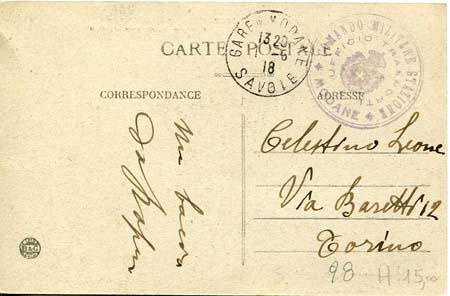 CARTE POSTALE
GARE DE MODANE
13 20
-6
18
SAVOIE
COMANDO MILITARE STAZIONE
UFFICIO TRASPORTI
MODANE
CORRESPONDANCE
ADRESSE
Un bacio
Da
Celestino Leone
Via Baretti 12
Torino
B&G
98 H 15,00